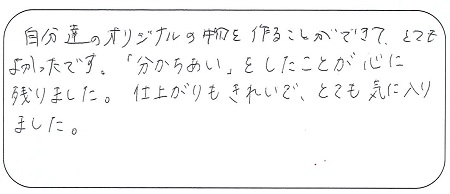 自分達のオリジナルの物を作ることができて、とても
よかったです。「分かちあい」としたことが心に
残りました。仕上がりもきれいで、とても気に入り
ました。